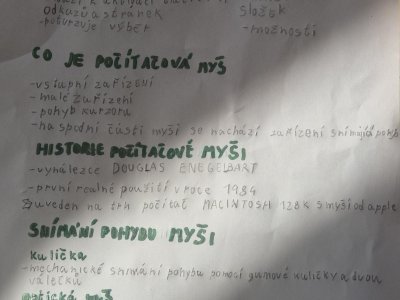 odkazů a stránek
složek
-potvrzuje výběr
-možnosti
CO JE POČÍTAČOVÁ MYŠ
-vstupní zařízení
-malé zařízení
-pohyb kurzoru
-na spodní části myši se nachází zařízení snímající pohyb
HISTORIE POČÍTAČOVÉ MYŠI
-vynálezce DOUGLAS ENEGELBART
-první reálné použití v roce 1984
uveden na trh počítač MACINTOSH 128K s myší od apple
SNÍMÁNÍ POHYBU MYŠI
Kulička
-mechanické snímání pohybu pomocí gumové kuličky a dvou
válečků
optická myš